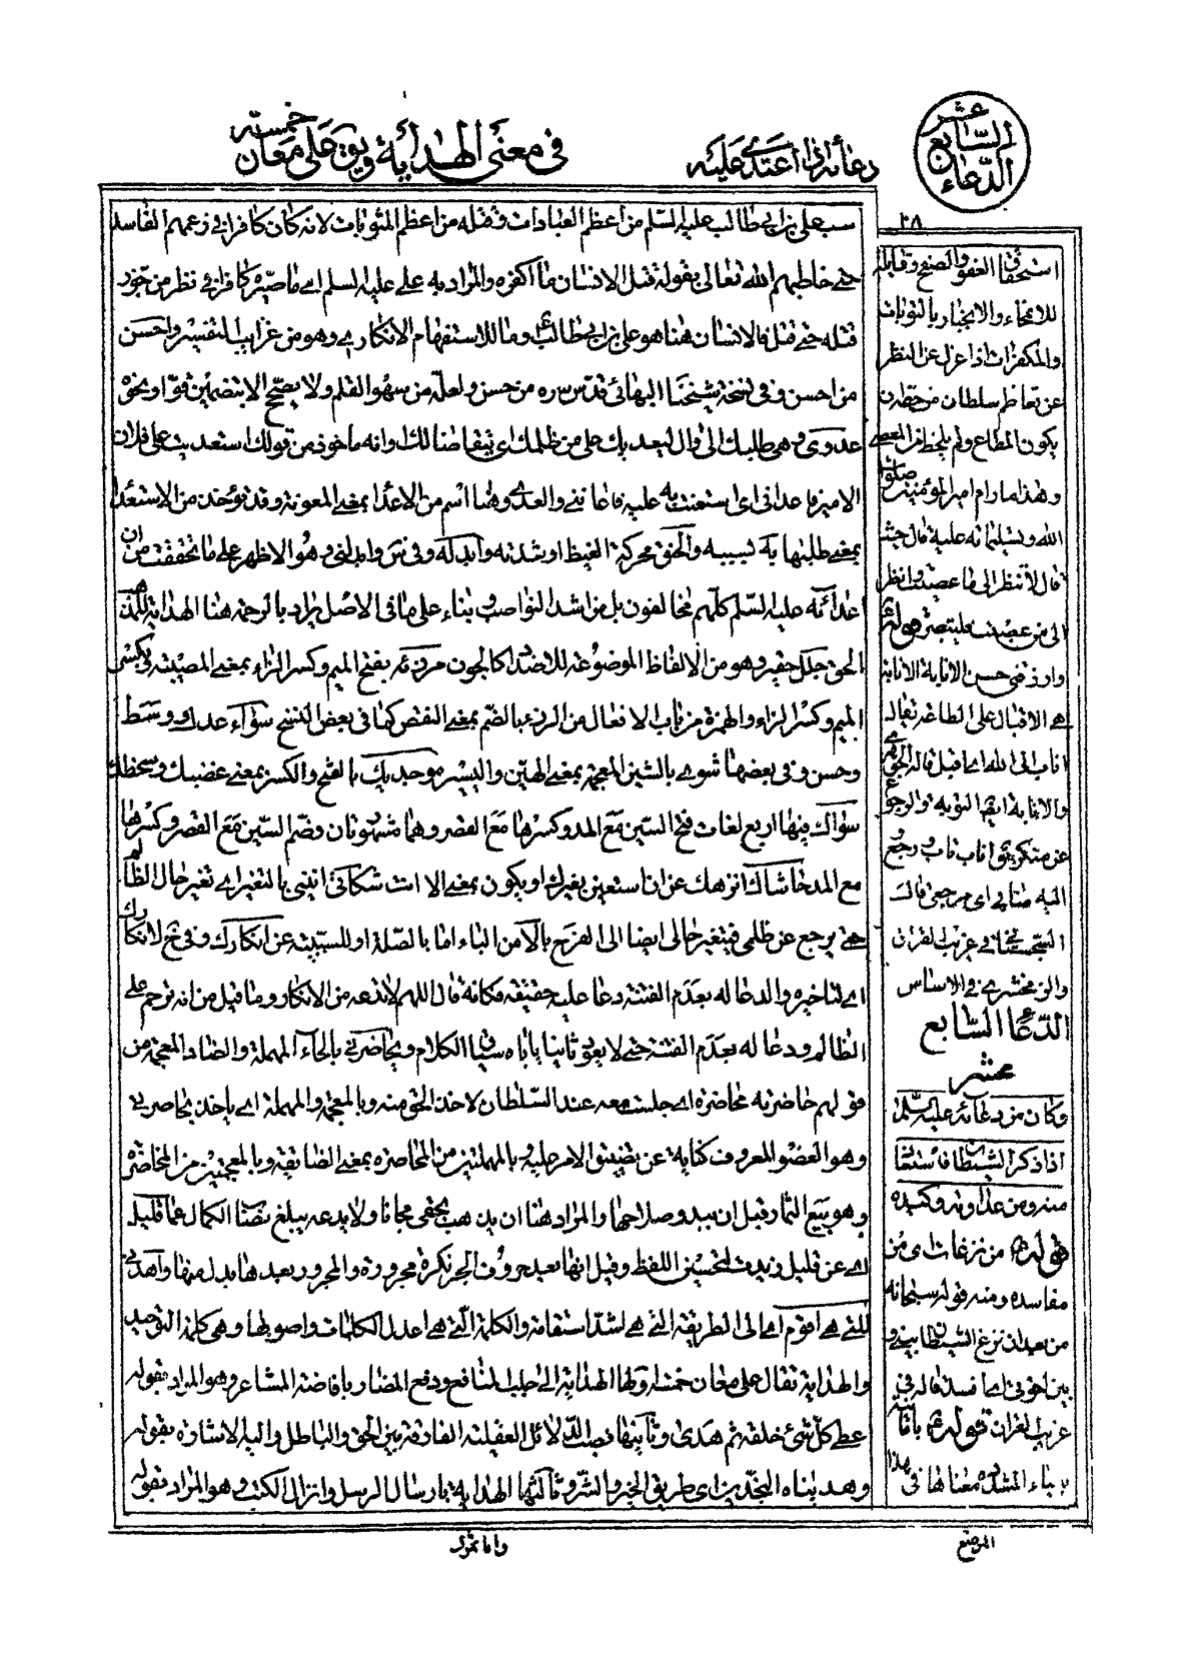 الدعاء السابع عشر
دعائه اذا اعتدى عليه
في معنى الهداية ويق على معان خمسة
٢٨
سب علي بن ابي طالب عليه السلم من اعظم العبادات وفضله من اعظم المثوبات لانه كان كافرا في زعمهم الفاسد
حتى خاطبهم الله تعالى بقوله قتل الانسان ما اكفره والمراد به علي عليه السلم اي ما صيّره كافرا في نظر من جوز
قتله حتى قتل فالانسان هنا هو علي بن ابي طالب وما للاستفهام الانكاري وهو من غرايب التفسير واحسن
من احسن وفي نسخة شيخنا البهائي قدس سره من حسن ولعله من سهو القلم ولا يصح الا بتضمين قوا ونحوه
عدوى وهي طلبك الى وال ليعديك على من ظلمك اي ينتقم لك او انه ماخوذ من قولك استعديت على فلان
الامير فاعداني اي استعنت به عليه فاعانني والعدوى هنا اسم من الاعداء بمعنى المعونة وقد تؤخذ من الاستعداء
بمعنى طلبها به لسببه والحنق محركة الغيظ او شدته وابدله وفي س وابدلني وهو الاظهر على ما تحققت من ان
اعدائه عليه السلم كلهم مخالفون بل من اشد النواصب وبناء على ما في الاصل يراد بالرحمة هنا الهداية للمذهب
الحق جلل حقير وهو من الالفاظ الموضوعة للاضداد كالجون مرزئة بفتح الميم وكسر الزاء بمعنى المصيبة في بكسر
الميم وكسر الزاء والهمزة من باب الافعال من الرزء بالضم بمعنى النقص كما في بعض النسخ سواء عدلك ووسط
وحسن وفي بعضها شوى بالشين المعجمة بمعنى الهين واليسير موجدتك بالفتح والكسر بمعنى غضبك وسخطك
سواك فيها اربع لغات فتح السين مع المد وكسرها مع القصر وهما مشهورتان وضم السين مع القصر وكسرها
مع المد حاشاك انزهك عن ان استعين بغيرك او يكون بمعنى الا انت شكاتي اتيني بالتغير اي تغير حال الظالم
حتى يرجع عن ظلمي فيتغير حالي ايضا الى الفرج بالامن الباء اما بالصلة او للسببية عن انكارك وفي نخ لانكارك
اي لتاخيره والدعا له بعدم الفتنة دعا عليه حقيقة فكانه قال اللهم لا تدعه من الانكار وما قيل من انه ترحم على
الظالم ودعا له بعدم الفتنة حتى لا يعود ثانيا ياباه سياق الكلام ويحاضرني بالحاء المهملة والضاد المعجمة من
قولهم حاضرته محاضرة اي جلست معه عند السلطان لاخذ الحق منه وبالمعجمة والمهملة اي ياخذ بخاصرتي
وهو العضو المعروف كناية عن تضييق الامر عليه وبالمهملتين من المحاصرة بمعنى الضايقة وبالمعجمتين من المخاضرة
وهو بيع الثمار قبل ان يبدو صلاحها والمراد هنا ان يذهب بحقي مجانا ولا يدعه يبلغ نصاب الكمال عما قليل
اي عن قليل زيدت لتحسين اللفظ وقيل انها بعد حروف الجر نكرة مجرورة والمجرور بعدها بدل منها واهدني
للتي هي اقوم اي الى الطريقة التي هي اشد استقامة والكلمة التي هي اعدل الكلمات واصوبها وهي كلمة التوحيد
والهداية تقال على معان خمسة اولها الهداية الى جلب المنافع ودفع المضار بافاضة المشاعر وهو المراد بقوله
اعطى كل شئ خلقه ثم هدى وثانيها نصب الدلائل العقلية الفارقة بين الحق والباطل واليه الاشارة بقوله
وهديناه النجدين اي طريق الخير والشر وثالثها الهداية بارسال الرسل وانزال الكتب وهو المراد بقوله
واما ثمود
استحقاق العفو والصفح وقابلة
للامحاء والانجبار بالتوبات
والمكفرات اذا عزل عن النظر
عن تعاظم سلطان من حقه ان
يكون المطاع ولم يلحظ المعصي
وهذا ما رام امير المؤمنين صلوات
الله وتسليماته عليه قال حيث
قال لا تنظر الى ما عصيت وانظر
الى من عصيت
وارزقني حسن الانابة الانابة
هي الاقبال على الطاعة يقال
اناب الى الله اي اقبل قاله الجوهري
والانابة ايضا التوبة والرجوع
عن منكر يق اناب تاب ورجع
اليه متابي اي مرجعي قاله
السجستاني في غريب القران
والزمخشري في الاساس
الدعاء السابع
عشر
وكان من دعائه عليه السلم
اذا ذكر الشيطان فاستعاذ
منه ومن عداوته وكيده
قوله من نزغات اي من
مفاسده ومنه قوله سبحانه
من بعد ان نزغ الشيطان بيني و
بين اخوتي اي افسد قاله في
غريب القران قوله بامانيه
بياء المشددة معناها في هذا
الموضع